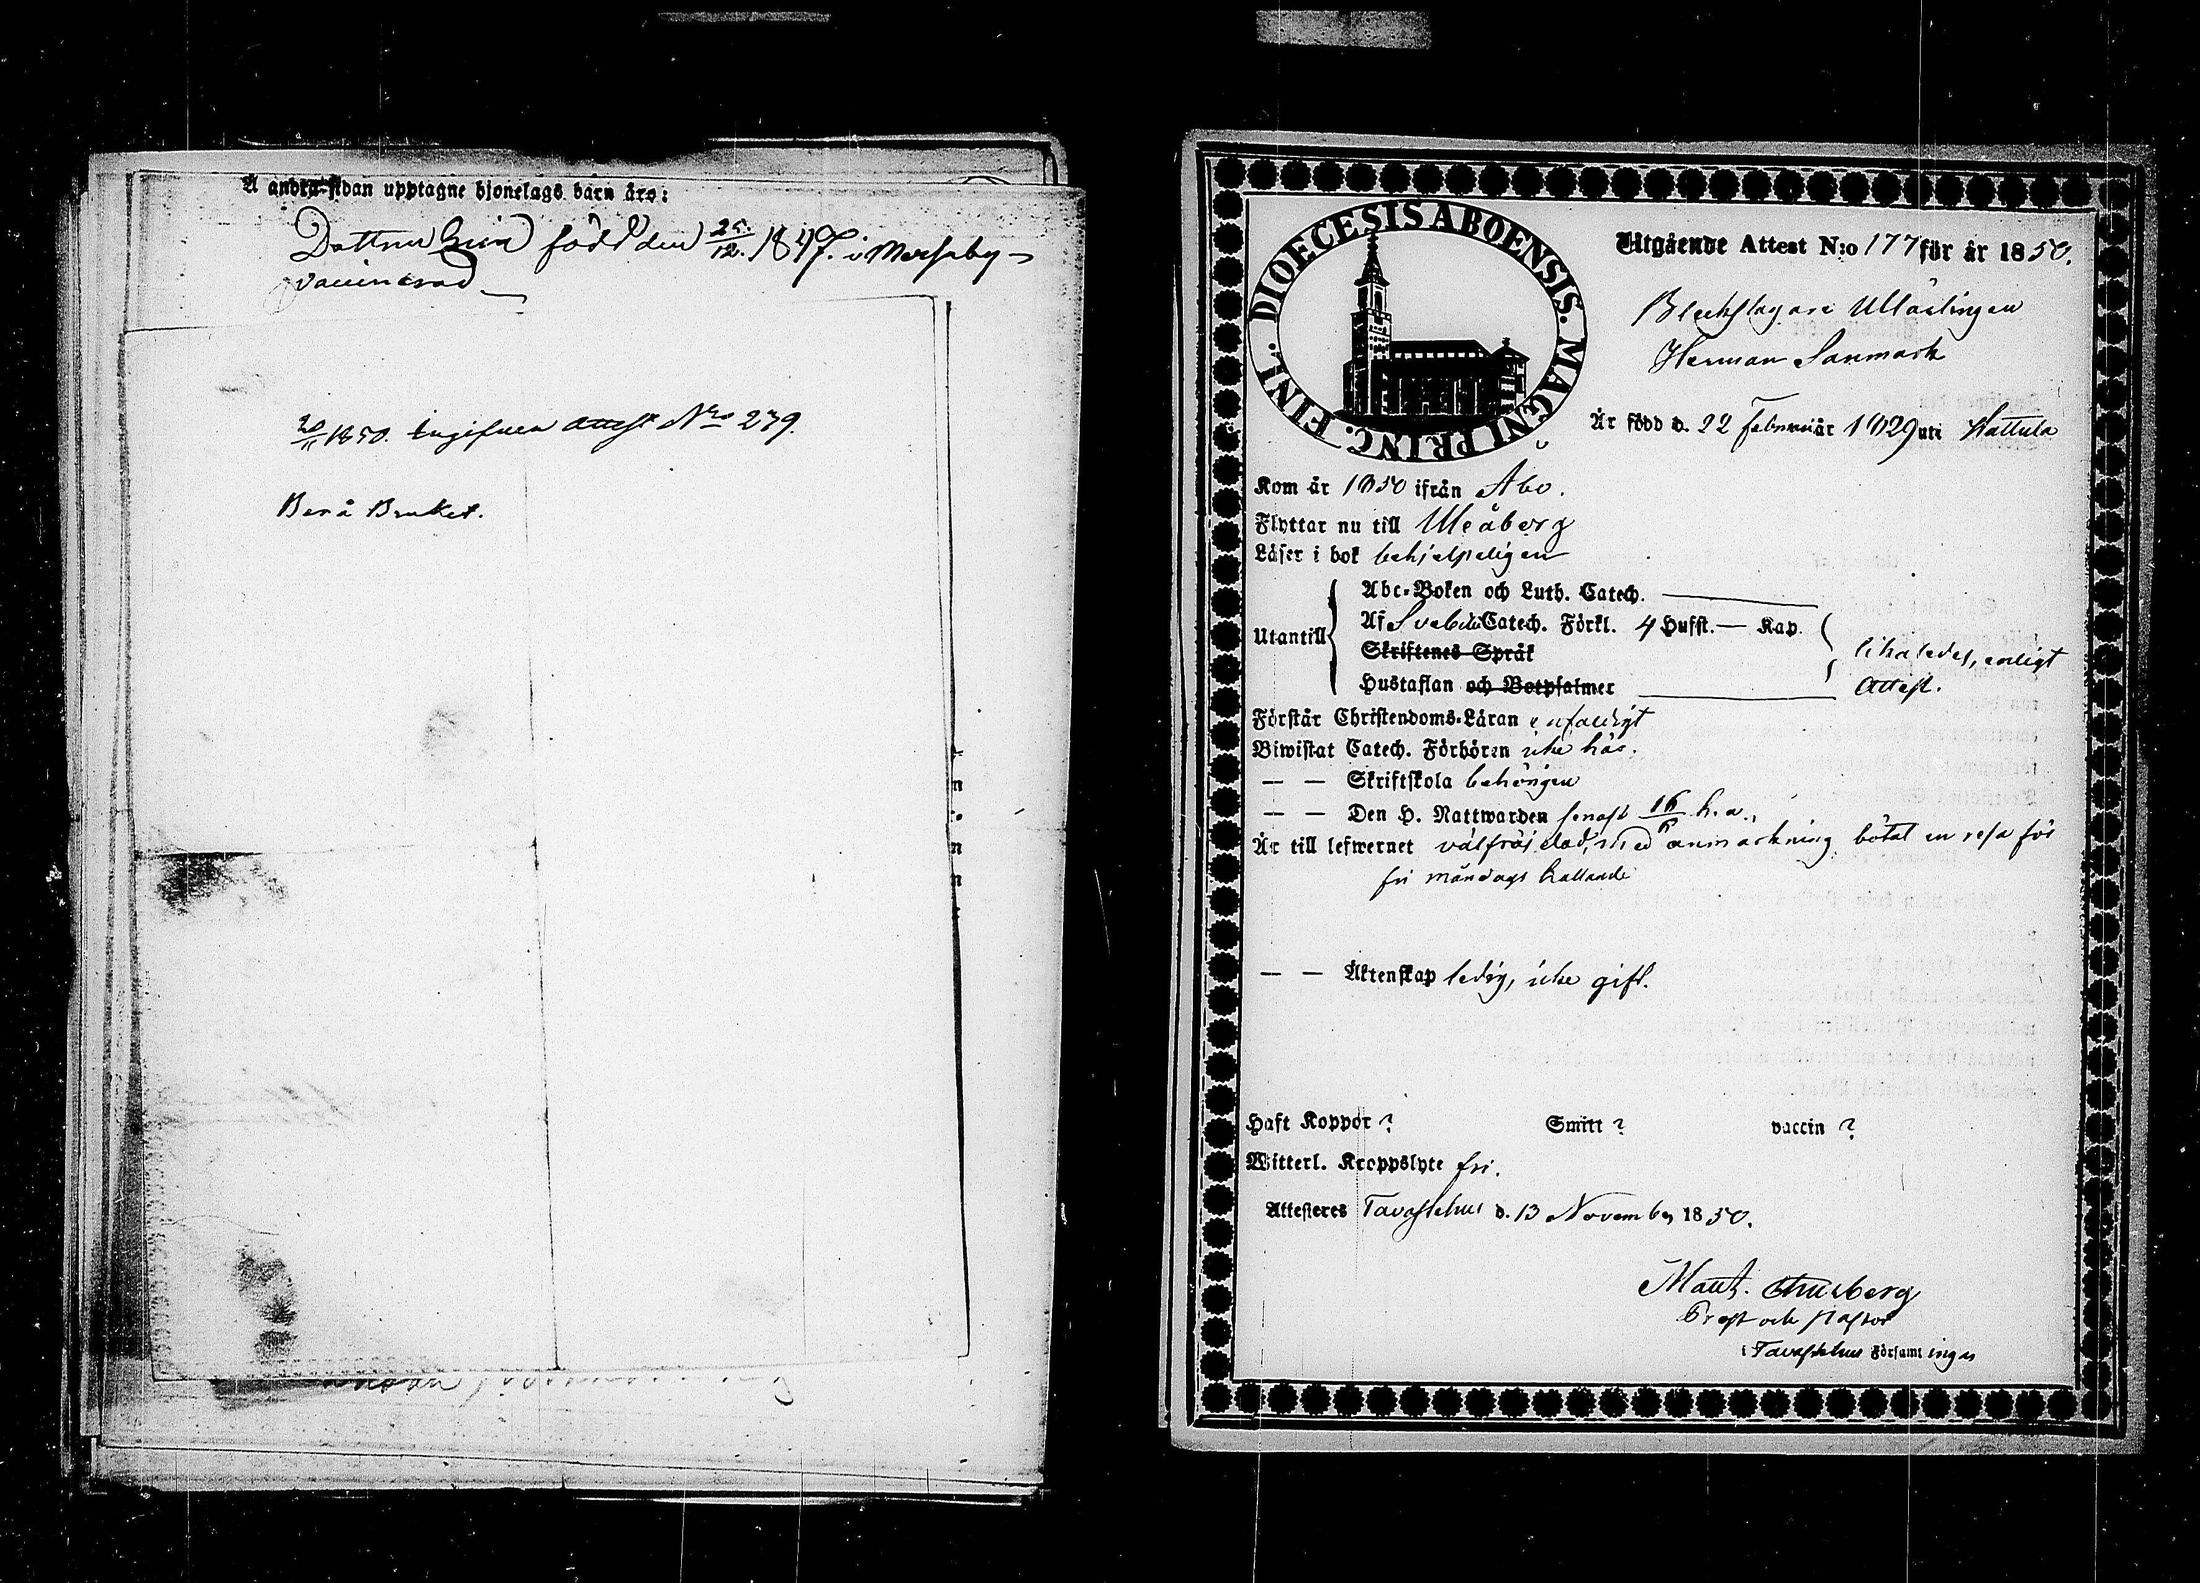 Å andra sidan upptagne hjonelags barn äro:
Dottren född den 25/12 1847. i
vaccinerad
20/11 1850. Ingifven attest No 239.
Bruket.
DIOECESIS ABOENSIS. MAGNI PRINC. FINL.
Utgående Attest N:o 177 för år 1850.
Bleckslagare Ullärlingen
Herman Sanmark
Är född d. 22 Februari år 1829 uti Hattula
Kom år 1850 ifrån Åbo.
Flyttar nu till Uleåborg
Läser i bok behjelpeligen
Utantill
Abc-Boken och Luth. Catech.
Af Svebilii Catech. Förkl. 4 Hufst. — Kap.
Skriftenes Språk
Hustaflan och Botpsalmer
likaledes, enligt
Attest.
Förstår Christendoms-Läran enfaldigt
Biwistat Catech. Förhören icke här.
— — Skriftskola behörigen
— — Den H. Nattwarden senast 16/6 h.a.,
Är till lefwernet välfräjdad, med anmärkning bötat en resa för
fri måndags hållande
— — Äktenskap ledig, icke gift.
Haft Koppor? Smitt? vaccin?
Witterl. Kroppslyte fri.
Attesteres Tavastehus d. 13 November 1850.
Prost och Pastor
i Tavastehus Församlingar